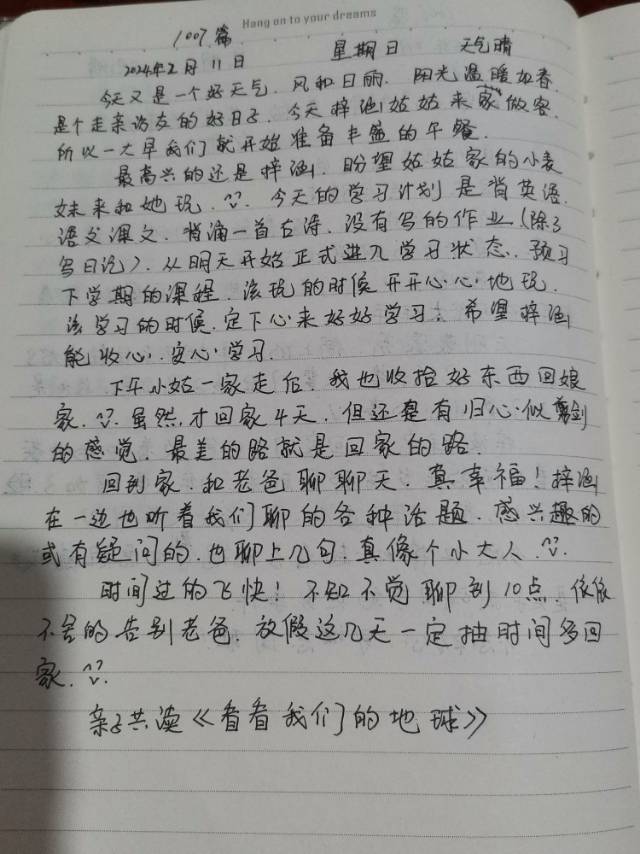 Hang on to your dreams
1007篇
2024年2月11日 星期日 天气晴
今天又是一个好天气. 风和日丽. 阳光温暖如春.
是个走亲访友的好日子. 今天梓涵姑姑来家做客.
所以一大早我们就开始准备丰盛的午餐.
最高兴的还是梓涵. 盼望姑姑家的小表
妹来和她玩. 今天的学习计划是背英语.
语文课文. 背诵一首古诗. 没有写的作业(除了
写日记). 从明天开始正式进入学习状态. 预习
下学期的课程. 该玩的时候开开心心地玩.
该学习的时候. 定下心来好好学习. 希望梓涵
能收心. 安心学习.
下午小姑一家走后. 我也收拾好东西回娘
家. 虽然才回家4天. 但还是有归心似箭
的感觉. 最美的路就是回家的路.
回到家. 和老爸聊聊天. 真幸福! 梓涵
在一边也听着我们聊的各种话题. 感兴趣的
或有疑问的. 也聊上几句. 真像个小大人.
时间过的飞快! 不知不觉聊到10点. 依依
不舍的告别老爸. 放假这几天一定抽时间多回
家.
亲子共读《看看我们的地球》